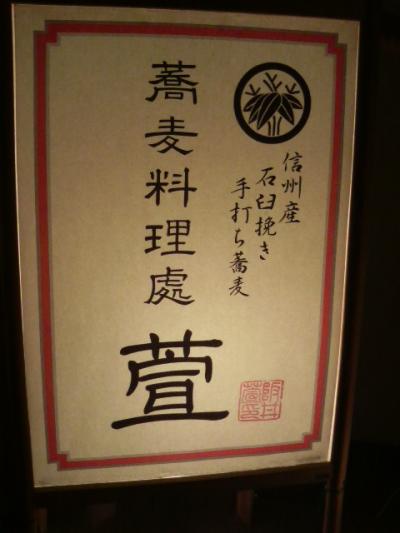 信州産
石臼挽き
手打ち蕎麦
蕎麦料理處
萱